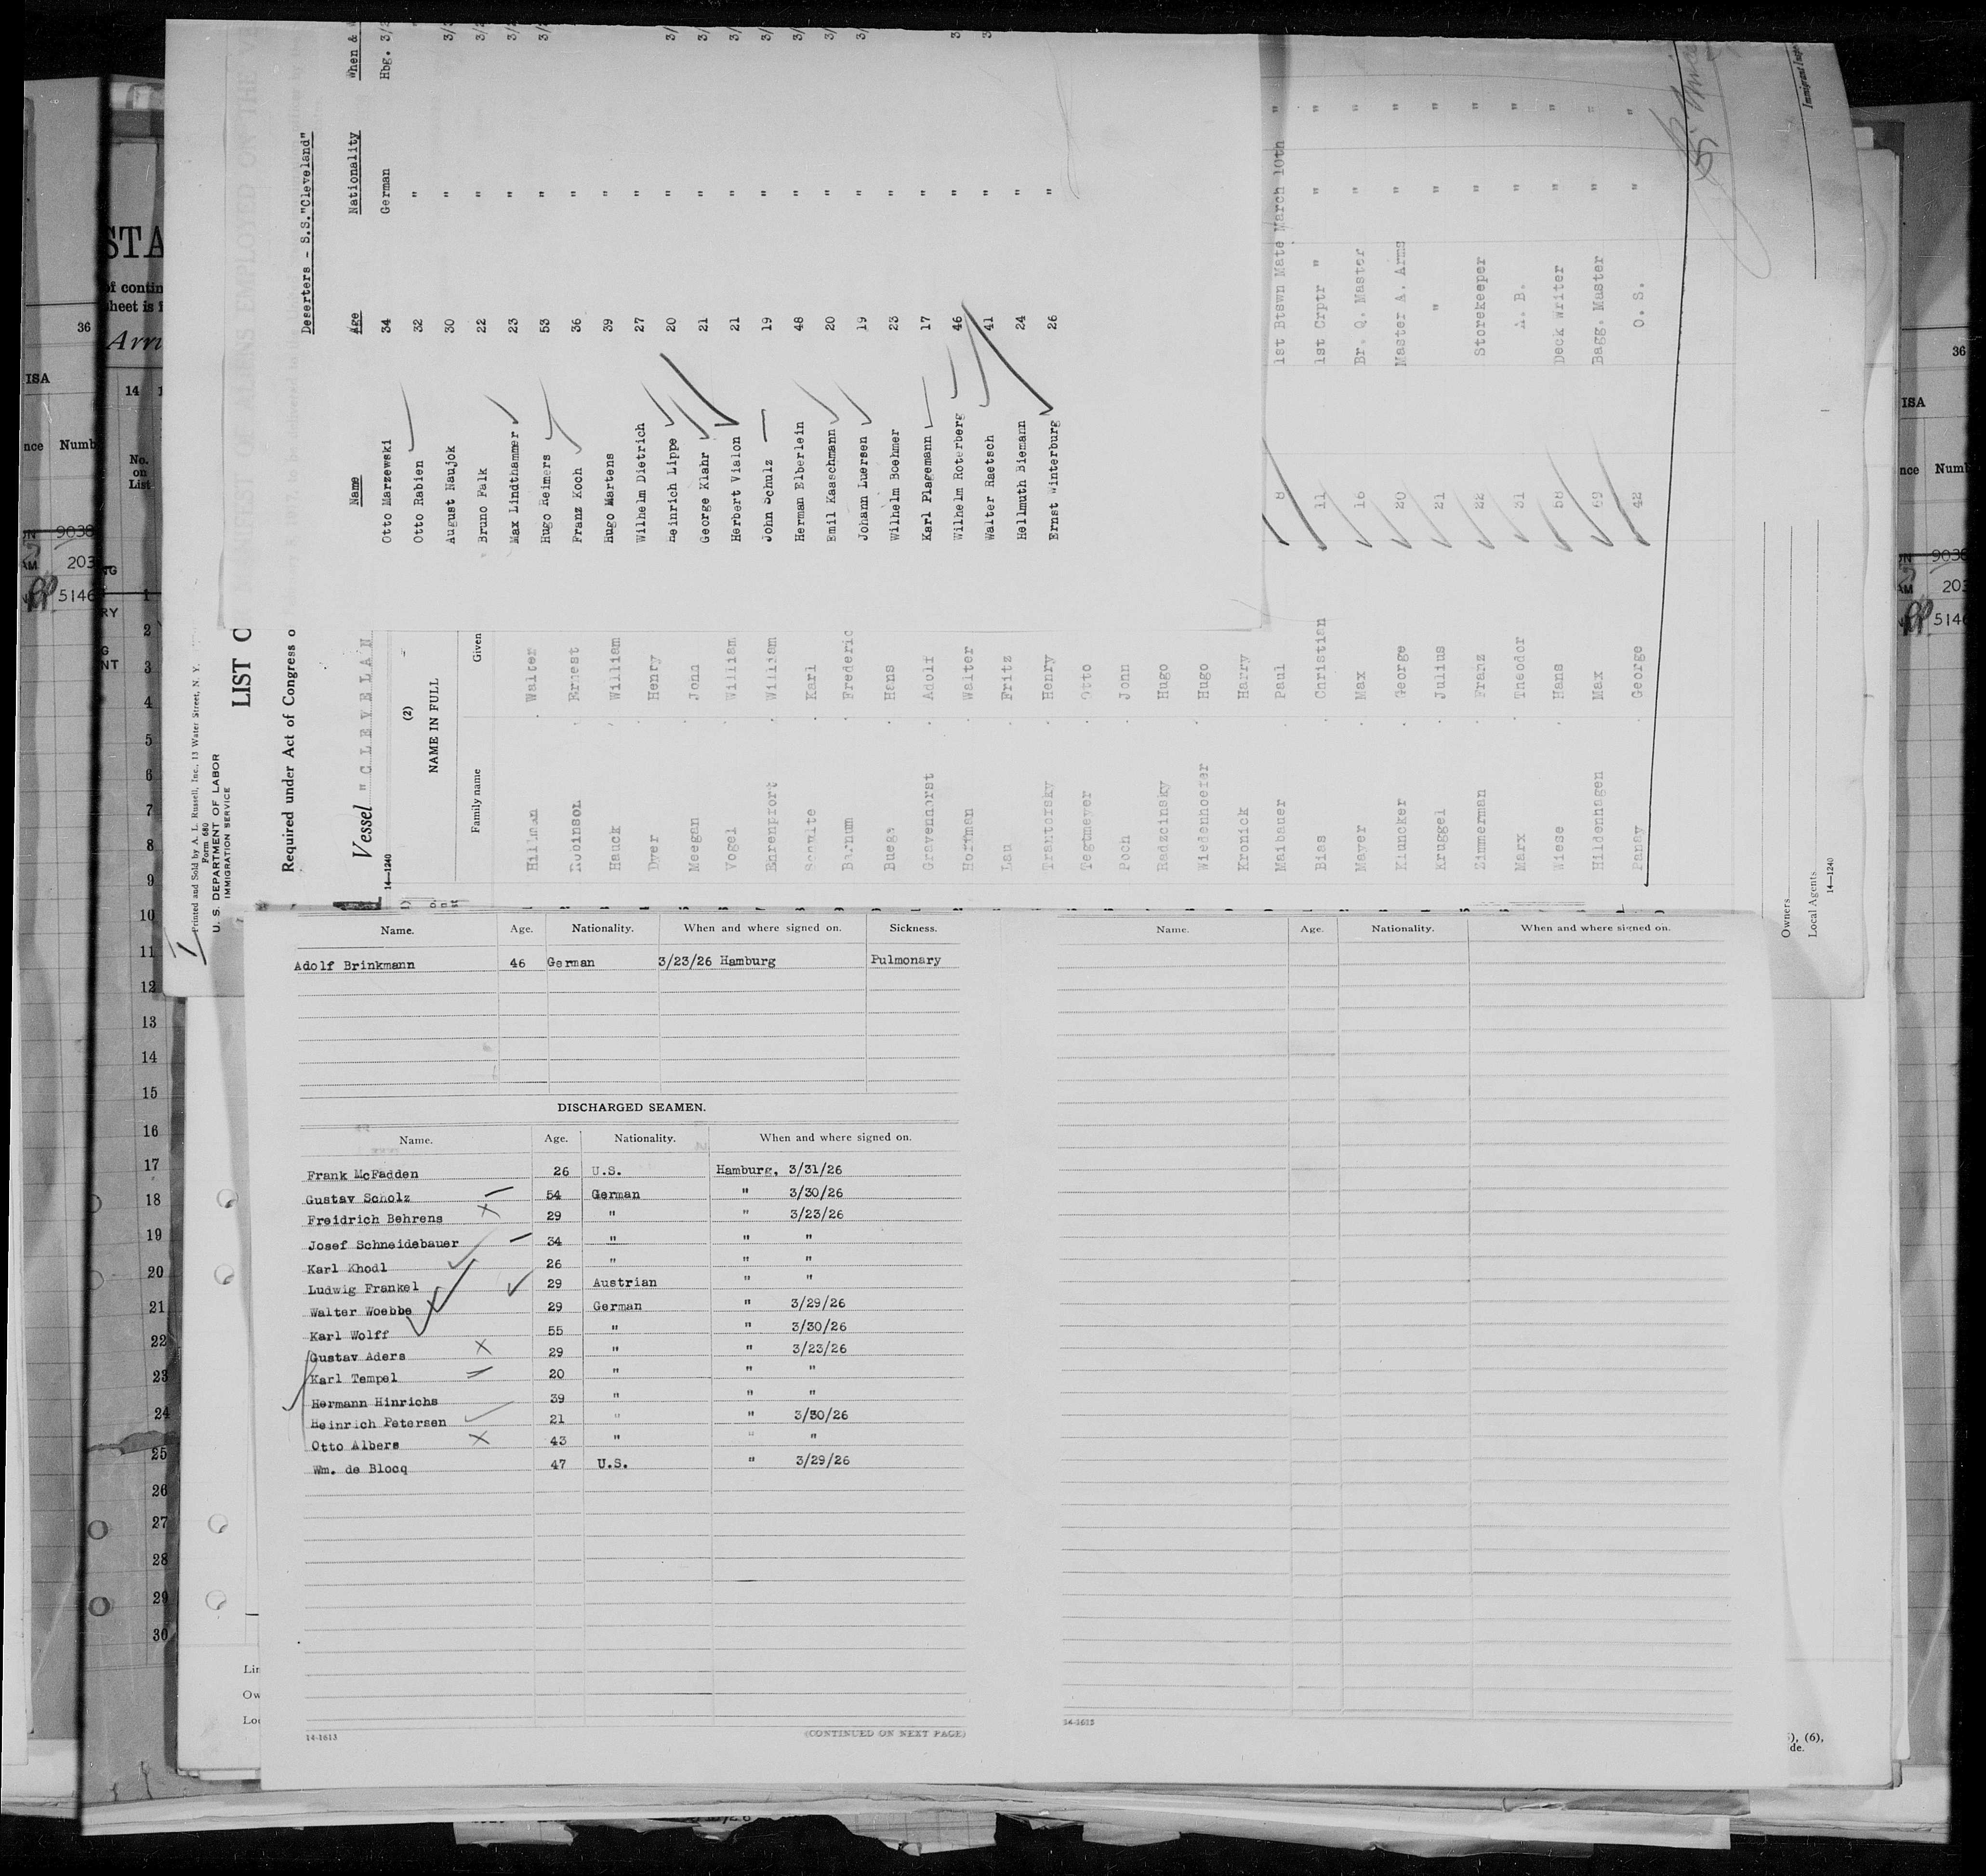 Deserters - S.S."Cleveland"
Name Age Nationality When &
Otto Marzewski 34 German Hbg. 3/
Otto Rabien 32 " "
August Naujok 30 " 3/
Bruno Falk 22 " 3/
Max Lindthammer 23 " 3/
Hugo Reimers 53 " 3/
Franz Koch 36 "
Hugo Martens 39 "
Wilhelm Dietrich 27 "
Heinrich Lippe 20 " 3/
George Klahr 21 " 3/
Herbert Vialon 21 " 3/
John Schulz 19 " 3/
Herman Elberlein 48 " 3/
Emil Kaaschmann 20 " 3/
Johann Luersen 19 " 3/
Wilhelm Boehmer 23 "
Karl Plagemann 17 "
Wilhelm Roterberg 46 " 3
Walter Raetsch 41 " 3
Hellmuth Biemann 24 "
Ernst Winterburg 26 "
Printed and Sold by A. L. Russell, Inc., 13 Water Street, N. Y.
Form 680
U. S. DEPARTMENT OF LABOR
IMMIGRATION SERVICE
LIST O
Required under Act of Congress o
Vessel "CLEVELAN
14—1240
(2)
NAME IN FULL
Family name Given
Hillman Walter
Robinson Ernest
Hauck William
Dyer Henry
Meegan John
Vogel William
Ehrenpfort William
Schulte Karl
Barnum Frederic
Buege Hans
Gravenhorst Adolf
Hoffman Walter
Lau Fritz
Trantofsky Henry
Tegtmeyer Otto
Poch John
Radzcinsky Hugo
Wiedenhoefer Hugo
Kronick Harry
Maibauer Paul 8 1st Btswn Mate March 10th "
Bias Christian 11 1st Crptr " " "
Mayer Max 16 Br. Q. Master " "
Kluncker George 20 Master A. Arms " "
Kruggel Julius 21 " " "
Zimmerman Franz 22 Storekeeper " "
Marx Theodor 31 A. B. " "
Wiese Hans 58 Deck Writer " "
Hildenhagen Max 69 Bagg. Master " "
Panay George 42 O. S. " "
Owners
Local Agents
14—1240
Name. Age. Nationality. When and where signed on. Sickness.
Adolf Brinkmann 46 German 3/23/26 Hamburg Pulmonary
DISCHARGED SEAMEN.
Name. Age. Nationality. When and where signed on.
Frank McFadden 26 U.S. Hamburg, 3/31/26
Gustav Scholz 54 German " 3/30/26
Freidrich Behrens 29 " " 3/23/26
Josef Schneidebauer 34 " " "
Karl Khodl 26 " " "
Ludwig Frankel 29 Austrian " "
Walter Woebbe 29 German " 3/29/26
Karl Wolff 55 " " 3/30/26
Gustav Aders 29 " " 3/23/26
Karl Tempel 20 " " "
Hermann Hinrichs 39 " " "
Heinrich Petersen 21 " " 3/30/26
Otto Albers 43 " " "
Wm. de Blocq 47 U.S. " 3/29/26
14-1613 (CONTINUED ON NEXT PAGE)
Name. Age. Nationality. When and where signed on.
14-1613
STA
of contin
sheet is f
Arri
14
No.
on
List
1
2
3
4
5
6
7
8
9
10
11
12
13
14
15
16
17
18
19
20
21
22
23
24
25
26
27
28
29
30
36
ISA
nce Numb
9038
203
5146
36
ISA
nce Numb
9038
203
5146
Lin
Ow
Loc
), (6),
de.